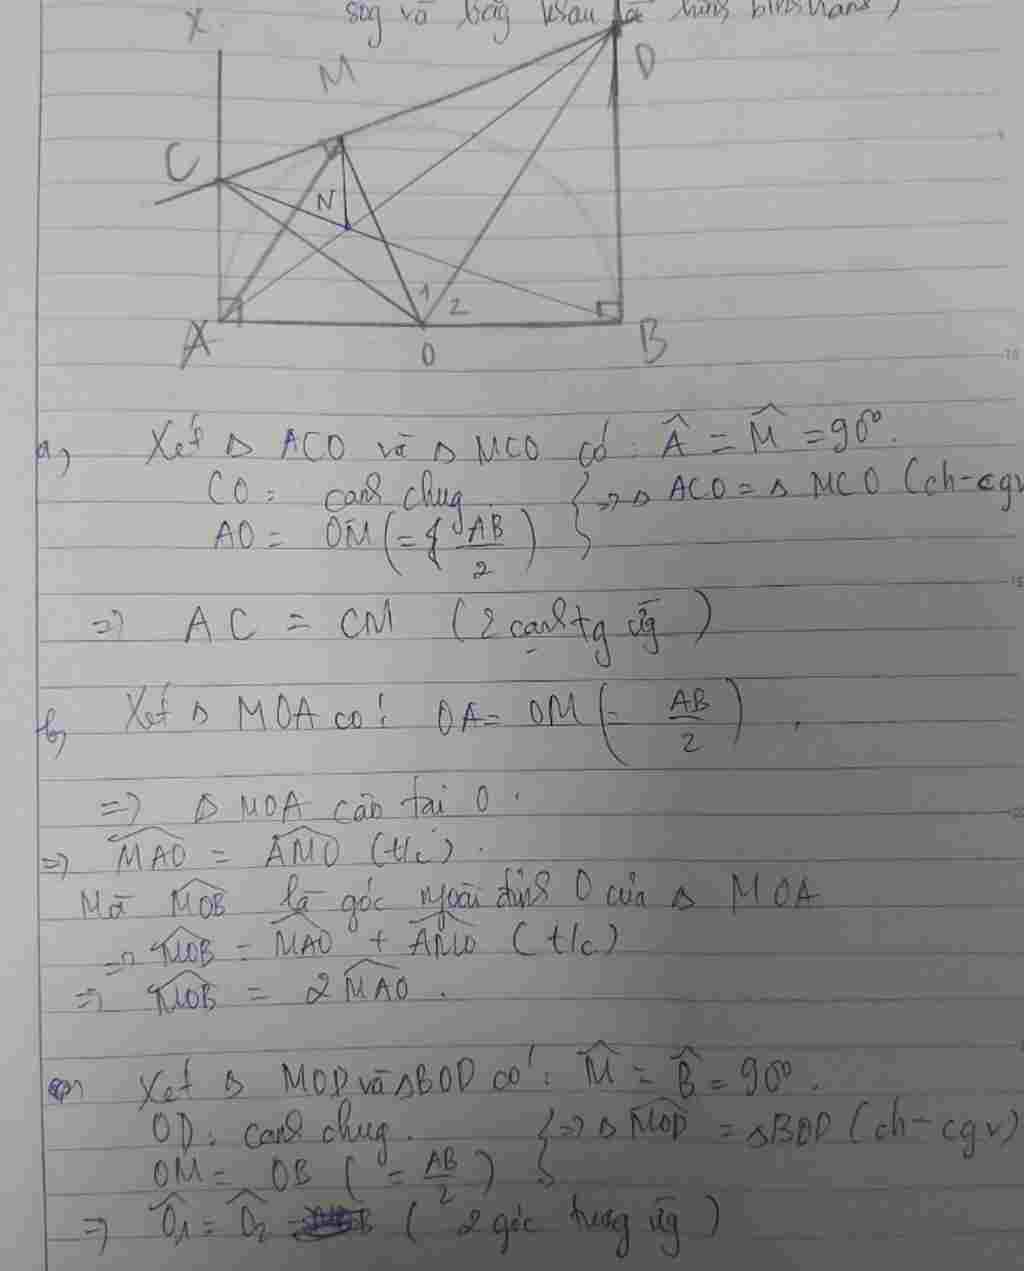 sog và bằg khau là hình bình hành)
X
M
D
C
N
1 2
A
O
B
a, Xét Δ ACO và Δ MCO có: Â = M̂ = 90°.
CO: cạnh chug.
AO = OM (= AB/2) } => Δ ACO = Δ MCO (ch-cgv
=> AC = CM (2 cạnh tg ứg)
b, Xét Δ MOA có: OA = OM (= AB/2)
=> Δ MOA cân tại O.
=> MAO = AMO (t/c).
Mà MOB là góc ngoài đỉnh O của Δ MOA
=> MOB = MAO + AMO (t/c)
=> MOB = 2 MAO.
Xét Δ MOD và Δ BOD có: M̂ = B̂ = 90°.
OD: cạnh chug.
OM = OB (= AB/2) } => Δ MOD = Δ BOD (ch-cgv)
=> Ô1 = Ô2 (2 góc tương ứg)